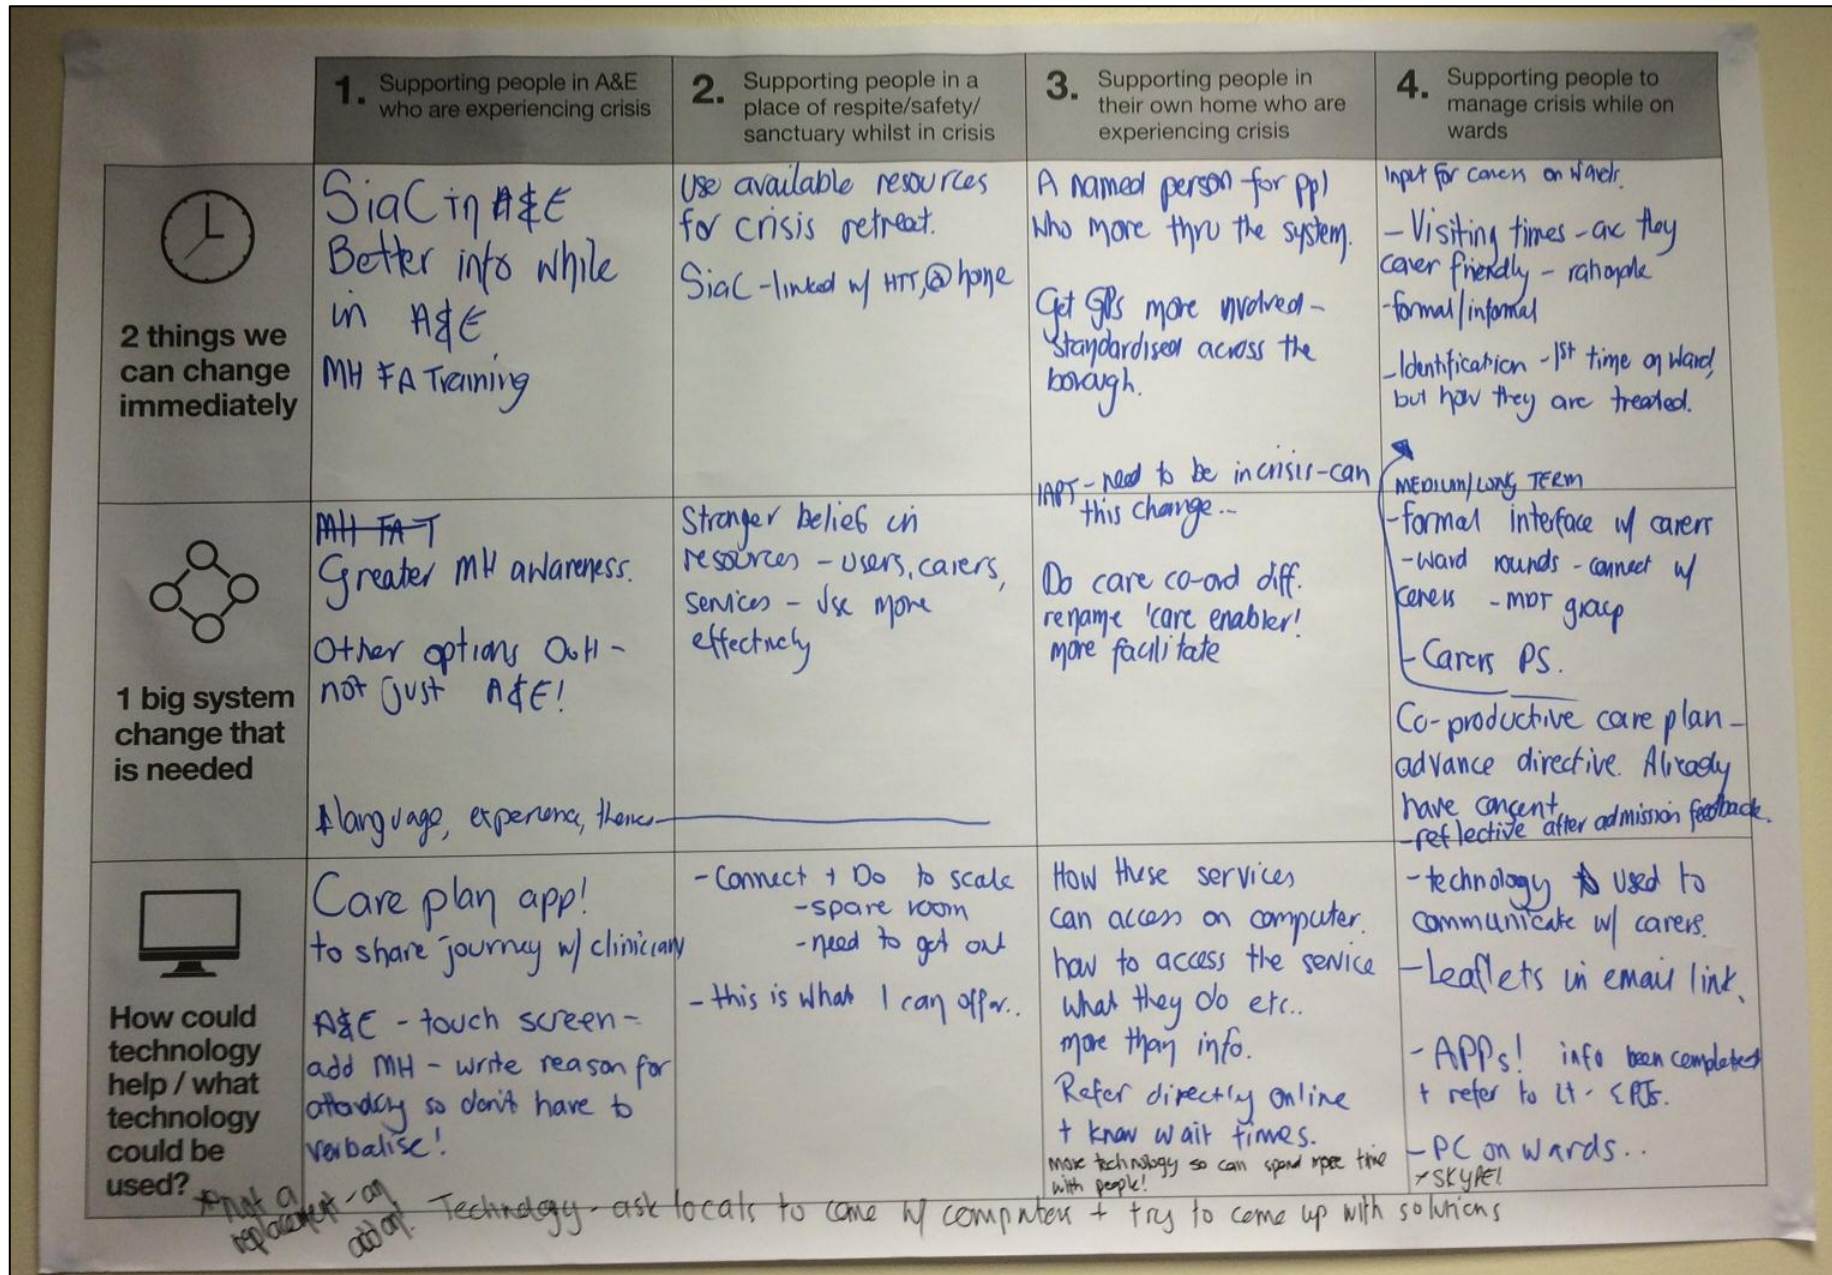 1. Supporting people in A&E
who are experiencing crisis
2. Supporting people in a
place of respite/safety/
sanctuary whilst in crisis
3. Supporting people in
their own home who are
experiencing crisis
4. Supporting people to
manage crisis while on
wards
2 things we
can change
immediately
SiaC in A&E
Better info while
in A&E
MH FA Training
Use available resources
for crisis retreat.
SiaC - linked w/ HTT, @ home
A named person for ppl
who more thru the system.
Get GPs more involved -
standardised across the
borough.
IAPT - need to be in crisis - can
this change...
Input for carers on wards.
- Visiting times - are they
carer friendly - rationale
- formal/informal
- Identification - 1st time on ward,
but how they are treated.
MEDIUM/LONG TERM
1 big system
change that
is needed
MH FA T
Greater MH awareness.
Other options OoH -
not just A&E!
language, experience,
Stronger belief in
resources - users, carers,
services - use more
effectively
Do care co-ord diff.
rename 'care enabler'!
more facilitate
- formal interface w/ carers
- ward rounds - connect w/
carers - MDT group
- Carers PS.
Co-productive care plan -
advance directive. Already
have consent
- reflective after admission feedback.
How could
technology
help / what
technology
could be
used?
Care plan app!
to share journey w/ clinician
A&E - touch screen -
add MH - write reason for
so don't have to
verbalise!
- Connect + Do to scale
- spare room
- need to get out
- this is what I can offer..
How these services
can access on computer.
how to access the service
what they do etc..
more than info.
Refer directly online
+ know wait times.
more technology so can spend more time
with people!
- technology used to
communicate w/ carers.
- Leaflets in email link.
- APPs! info been completed
+ refer to it - EPJs.
- PC on wards..
SKYPE!
* not a
replacement - an
add on!
Technology - ask locals to come w/ computers + try to come up with solutions